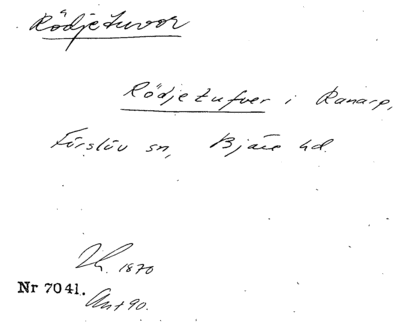 Rödjetuvor
Rödjetufver i Ranarp,
Förslöv sn, Bjäre hd.
1870
Nr 7041.
Ant 90.